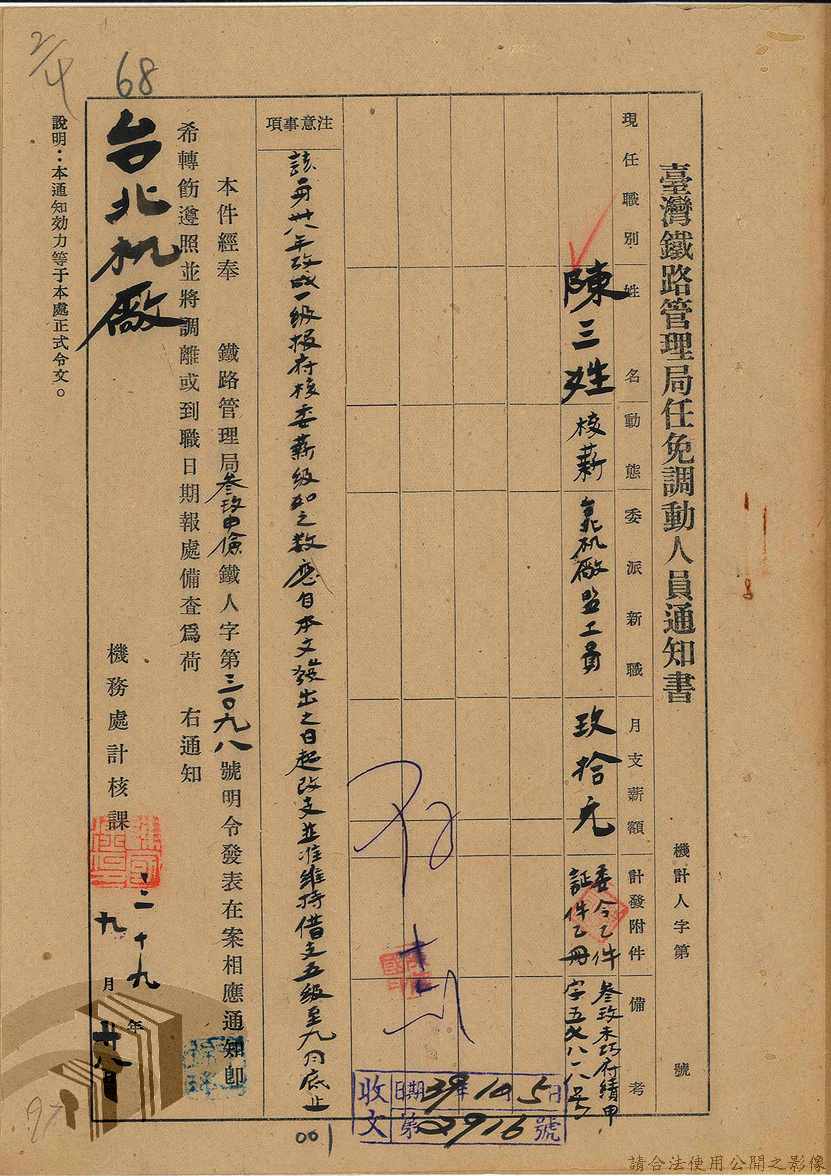 臺灣鐵路管理局任免調動人員通知書
機計人字第　　號
現任職別
姓名
動態
委派新職
月支薪額
計發附件
備考
陳三姓
核薪
機廠監工員
玖拾元
委令乙件
証件乙冊
叁玖未巧府績甲
字五七八一八号
注意事項
該員卅八年攷成一級報府核委薪級如之數應自本文發出之日起改支並准維持借支五級至九月底止
本件經奉　鐵路管理局叁玖申儉鐵人字第三〇九八號明令發表在案相應通知卽
希轉飭遵照並將調離或到職日期報處備查爲荷　右通知
台北机厰
機務處計核課
三十九年九月廿八日
說明：本通知効力等于本處正式令文。
2/4
68
收文
日期39年10月5日
第2916號
001
97
請合法使用公開之影像